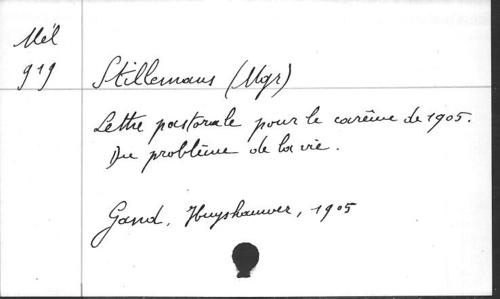 Mél
919
Stillemans (Mgr)
Lettre pastorale pour le carême de 1905.
Du problème de la vie.
Gand, Huyshauwer, 1905